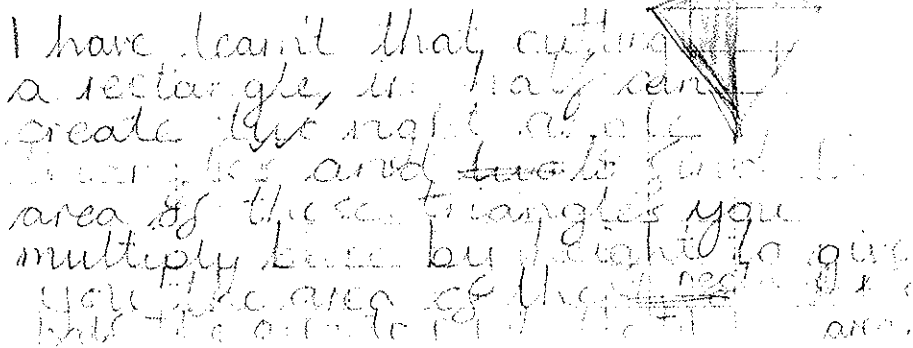 I have learnt that cutting
a rectangle, in half can
create two right angle
triangles and, to find the
area of these triangles you
multiply base by height to give
you the area of the
half the area.